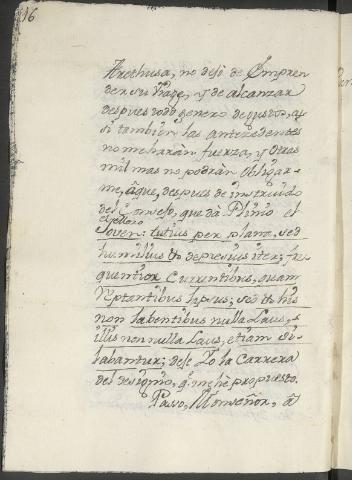 16
Arethusa, no dejó de Empren
der su Viage, y de alcanzar
despues todo genero de gustos, as
si tambien las antecedentes
no me haràn fuerza, y otras
mil mas no podràn obligar-
me, à que, despues de instruido
del Consejo, que dà Plinio el
Joven: tutius per plana, sed
humilius & depressius iter; fre
quentior Currentibus, quam
reptantibus lapsus; sed & his
non labentibus nulla Laus,
illis non nulla Laus, etiam si
labantur; deje Yo la Carrera
del designio, q. me hè propuesto.
Passo, Monseñor, à